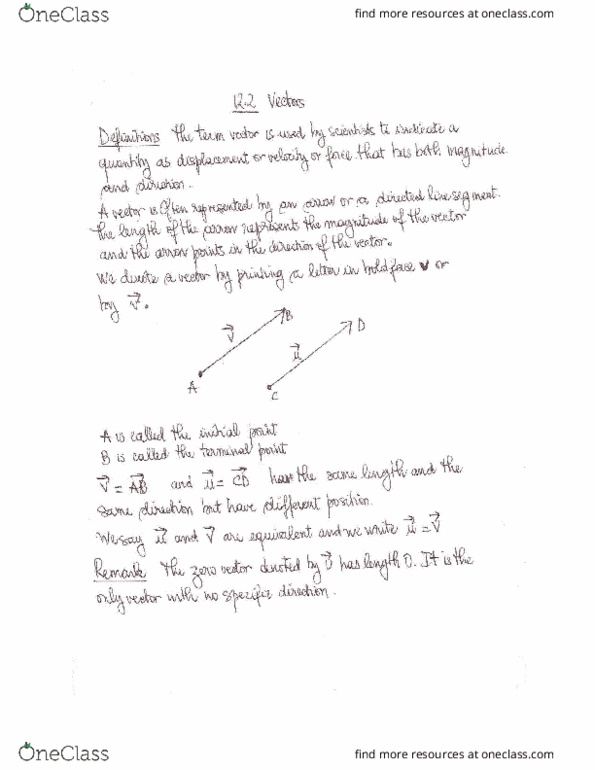 OneClass
find more resources at oneclass.com
12.2 Vectors
Definitions The term vector is used by scientists to indicate a
quantity as displacement or velocity or force that has both magnitude
and direction.
A vector is often represented by an arrow or a directed line segment.
The length of the arrow represent the magnitude of the vector
and the arrow points in the direction of the vector.
We denote a vector by printing a letter in boldface v or
by v⃗.
B
D
v⃗
u⃗
A
C
A is called the initial point
B is called the terminal point
v⃗ = A⃗B⃗ and u⃗ = C⃗D⃗ has the same length and the
same direction but have different position.
We say u⃗ and v⃗ are equivalent and we write u⃗ = v⃗
Remark The zero vector denoted by 0⃗ has length 0. It is the
only vector with no specific direction.
OneClass
find more resources at oneclass.com